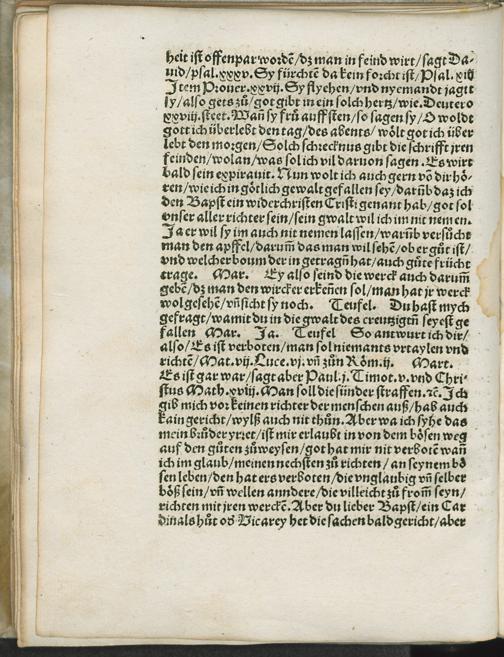 heit ist offenpar wordẽ/dz man in feind wirt/sagt Da-
uid/psal.xxxv. Sy fürchtẽ da kein forcht ist/Psal. xiij
Item Prouer.xxvij. Sy flyehen/vnd nyemandt jagtt
sy/also gets zů/got gibt in ein solch hertz/wie. Deutero
xxviij.steet. Wañ sy frů auffsten/so sagen sy/O woldt
gott ich überlebt den tag/des abents/wölt got ich über
lebt den morgen/Solch schrecknus gibt die schrifft jren
feinden/wolan/was sol ich vil daruon sagen. Es wirt
bald sein expirauit. Nun wolt ich auch gern võ dir hö-
ren/wie ich in götlich gewalt gefallen sey/darũb daz ich
den Bapst ein widerchristen Cristi genant hab/got sol
vnser aller richter sein/sein gwalt wil ich im nit nemen.
Ja er wil sy im auch nit nemen lassen/warũb versůcht
man den apffel/darum̃ das man wil sehẽ/ob er gůt ist/
vnd welcher boum der in getragñ hat/auch gůte frücht
trage. Mar. Ey also seind die werck auch darum̃
gebẽ/dz man den wircker erkẽnen sol/man hat jr werck
wol gesehẽ/vñ sicht sy noch. Teufel. Du hast mych
gefragt/wamit du in die gwalt des creutzigtñ seyest ge
fallen Mar. Ja. Teufel So antwurt ich dir/
also/Es ist verboten/man sol niemants vrtaylen vnd
richtẽ/Mat.vij.Luce.vj.vñ zůn Röm.ij. Mart.
Es ist gar war/sagt aber Paul.j. Timot.v.vnd Chri-
stus Math.xviij. Man soll die sünder straffen.⁊c̃. Ich
gib mich vor keinen richter der menschen auß/hab auch
kain gericht/wylß auch nit thůn. Aber wa ich syhe das
mein brůder yrret/ist mir erlaubt in von dem bösen weg
auf den gůten zůweysen/got hat mir nit verbotẽ wañ
ich im glaub/meinen nechsten zů richten/an seynem bö
sen leben/den hat ers verboten/die vnglaubig vñ selber
böß sein/vñ wellen anndere/die villeicht zů from̃ seyn/
richten mit jren werckẽ. Aber du lieber Bapst/ein Car
dinals hůt od̕ Vicarey het die sachen bald gericht/aber